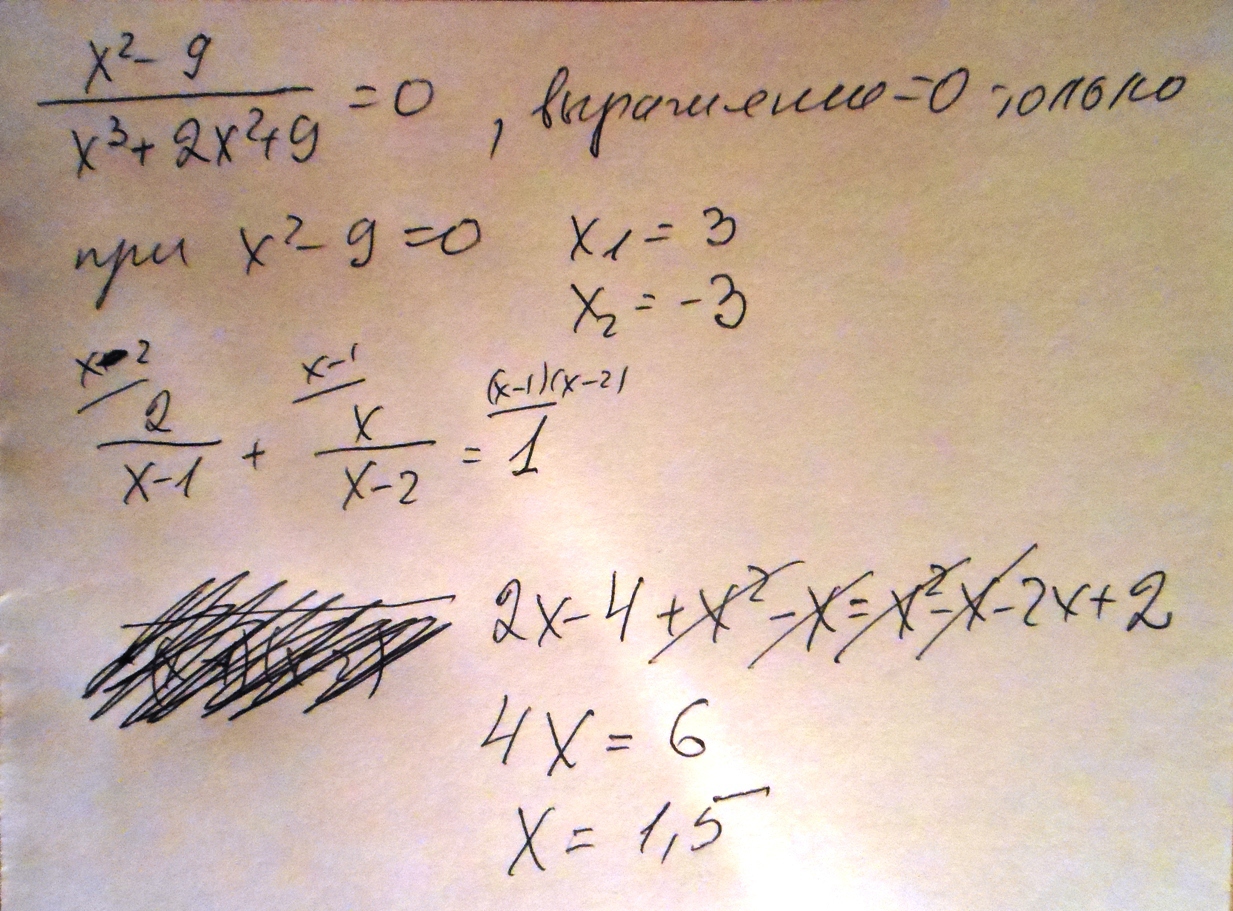 x² - 9 / x³ + 2x² + 9 = 0 , выражение = 0 только
при x² - 9 = 0 x₁ = 3
x₂ = -3
x-2 x-1 (x-1)(x-2)
2 / x-1 + x / x-2 = 1
2x - 4 + x² - x = x² - x - 2x + 2
4x = 6
x = 1,5